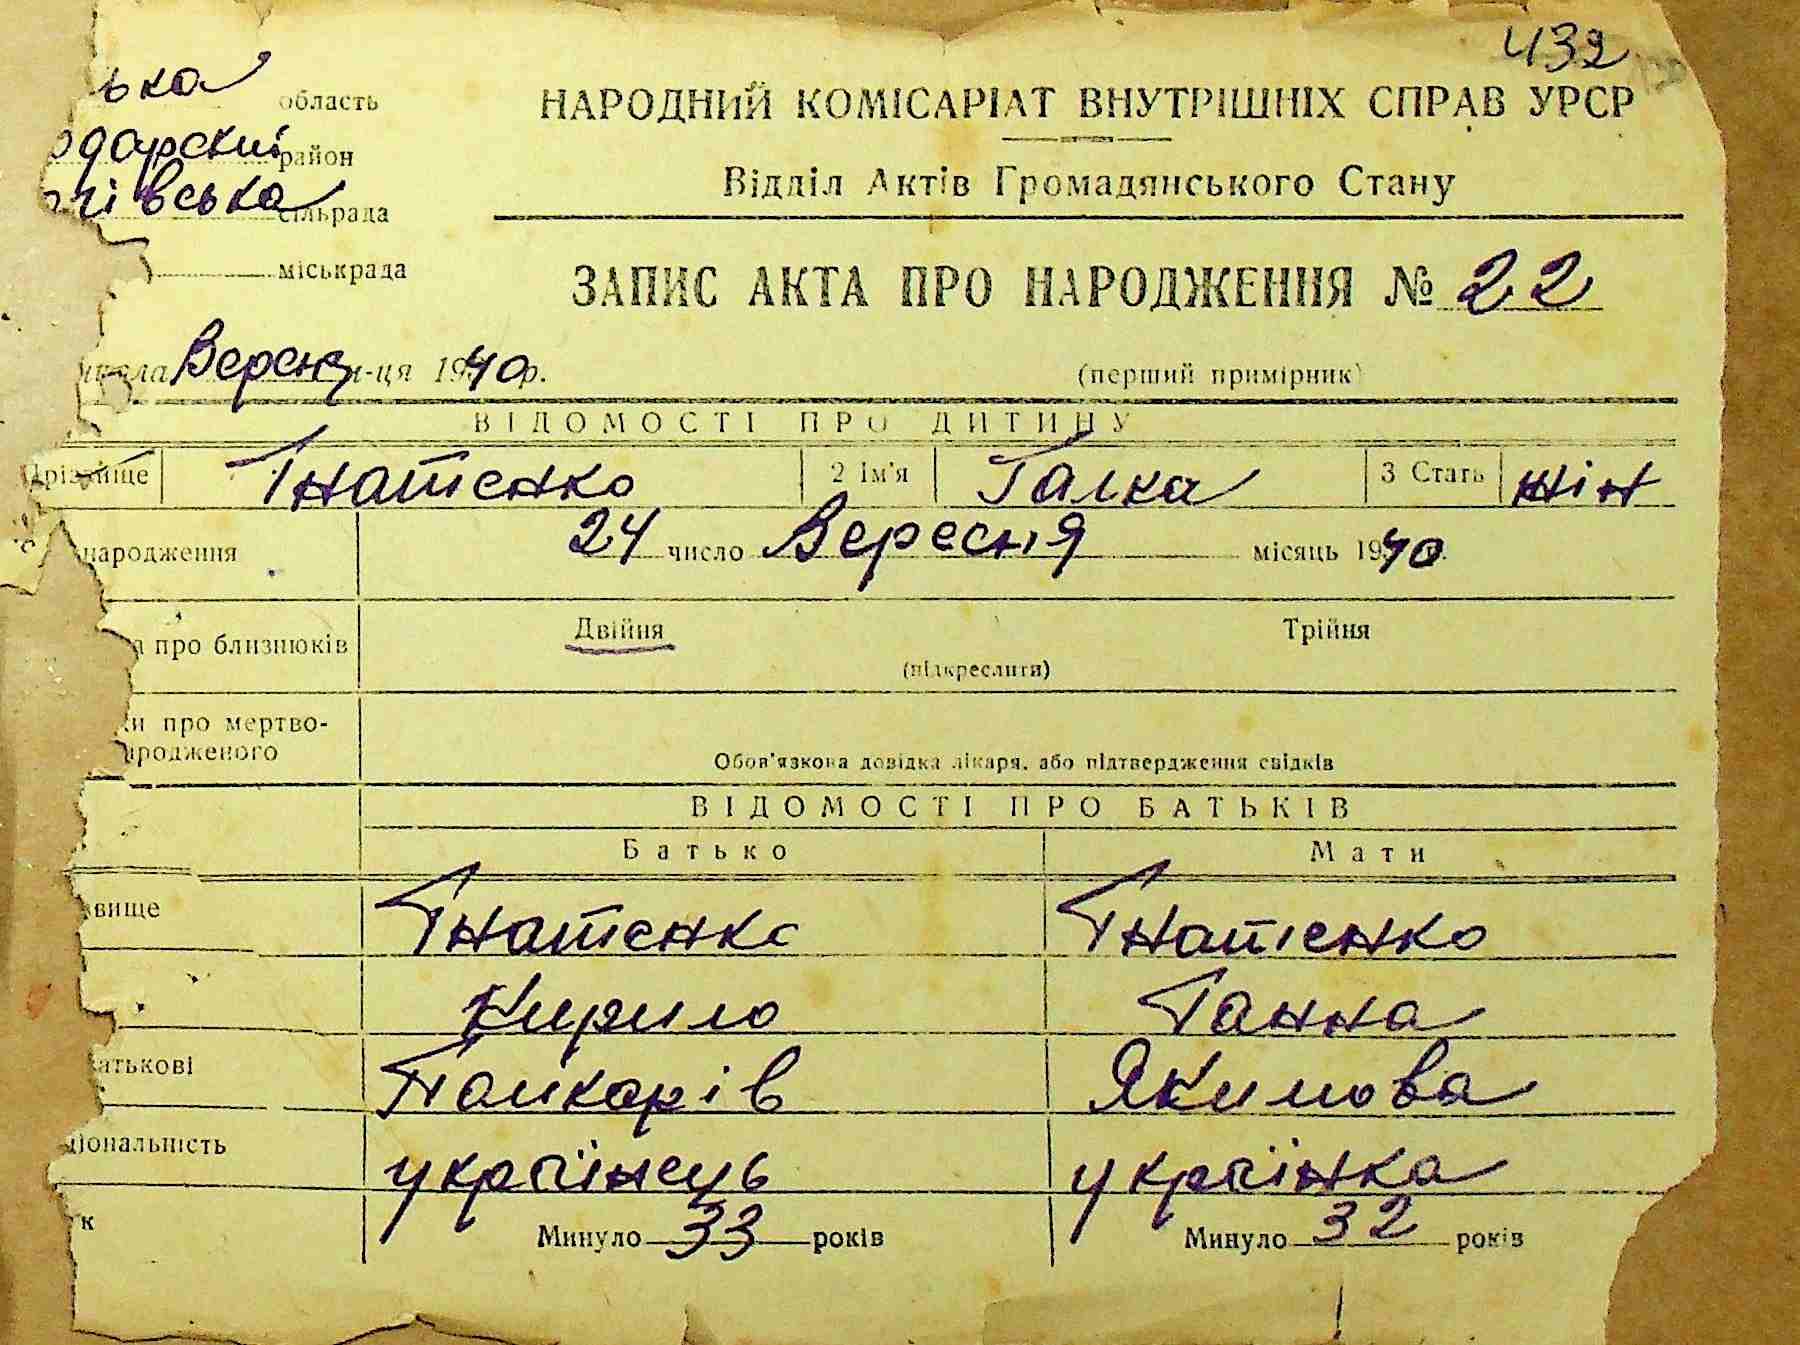 432
ька область
одарский район
гівська сільрада
міськрада
НАРОДНИЙ КОМІСАРІАТ ВНУТРІШНІХ СПРАВ УРСР
Відділ Актів Громадянського Стану
ЗАПИС АКТА ПРО НАРОДЖЕННЯ № 22
Вересня м-ця 1940 р.
(перший примірник)
ВІДОМОСТІ ПРО ДИТИНУ
Прізвище Гнатенко 2 Ім'я Галка 3 Стать жін
народження 24 число Вересня місяць 1940 р.
про близнюків Двійня Трійня
(підкреслити)
ки про мертво-
народженого Обов'язкова довідка лікаря, або підтвердження свідків
ВІДОМОСТІ ПРО БАТЬКІВ
Батько Мати
звище Гнатенко Гнатенко
Кирило Ганна
батькові Якимова
ціональність українець українка
к Минуло 33 років Минуло 32 років